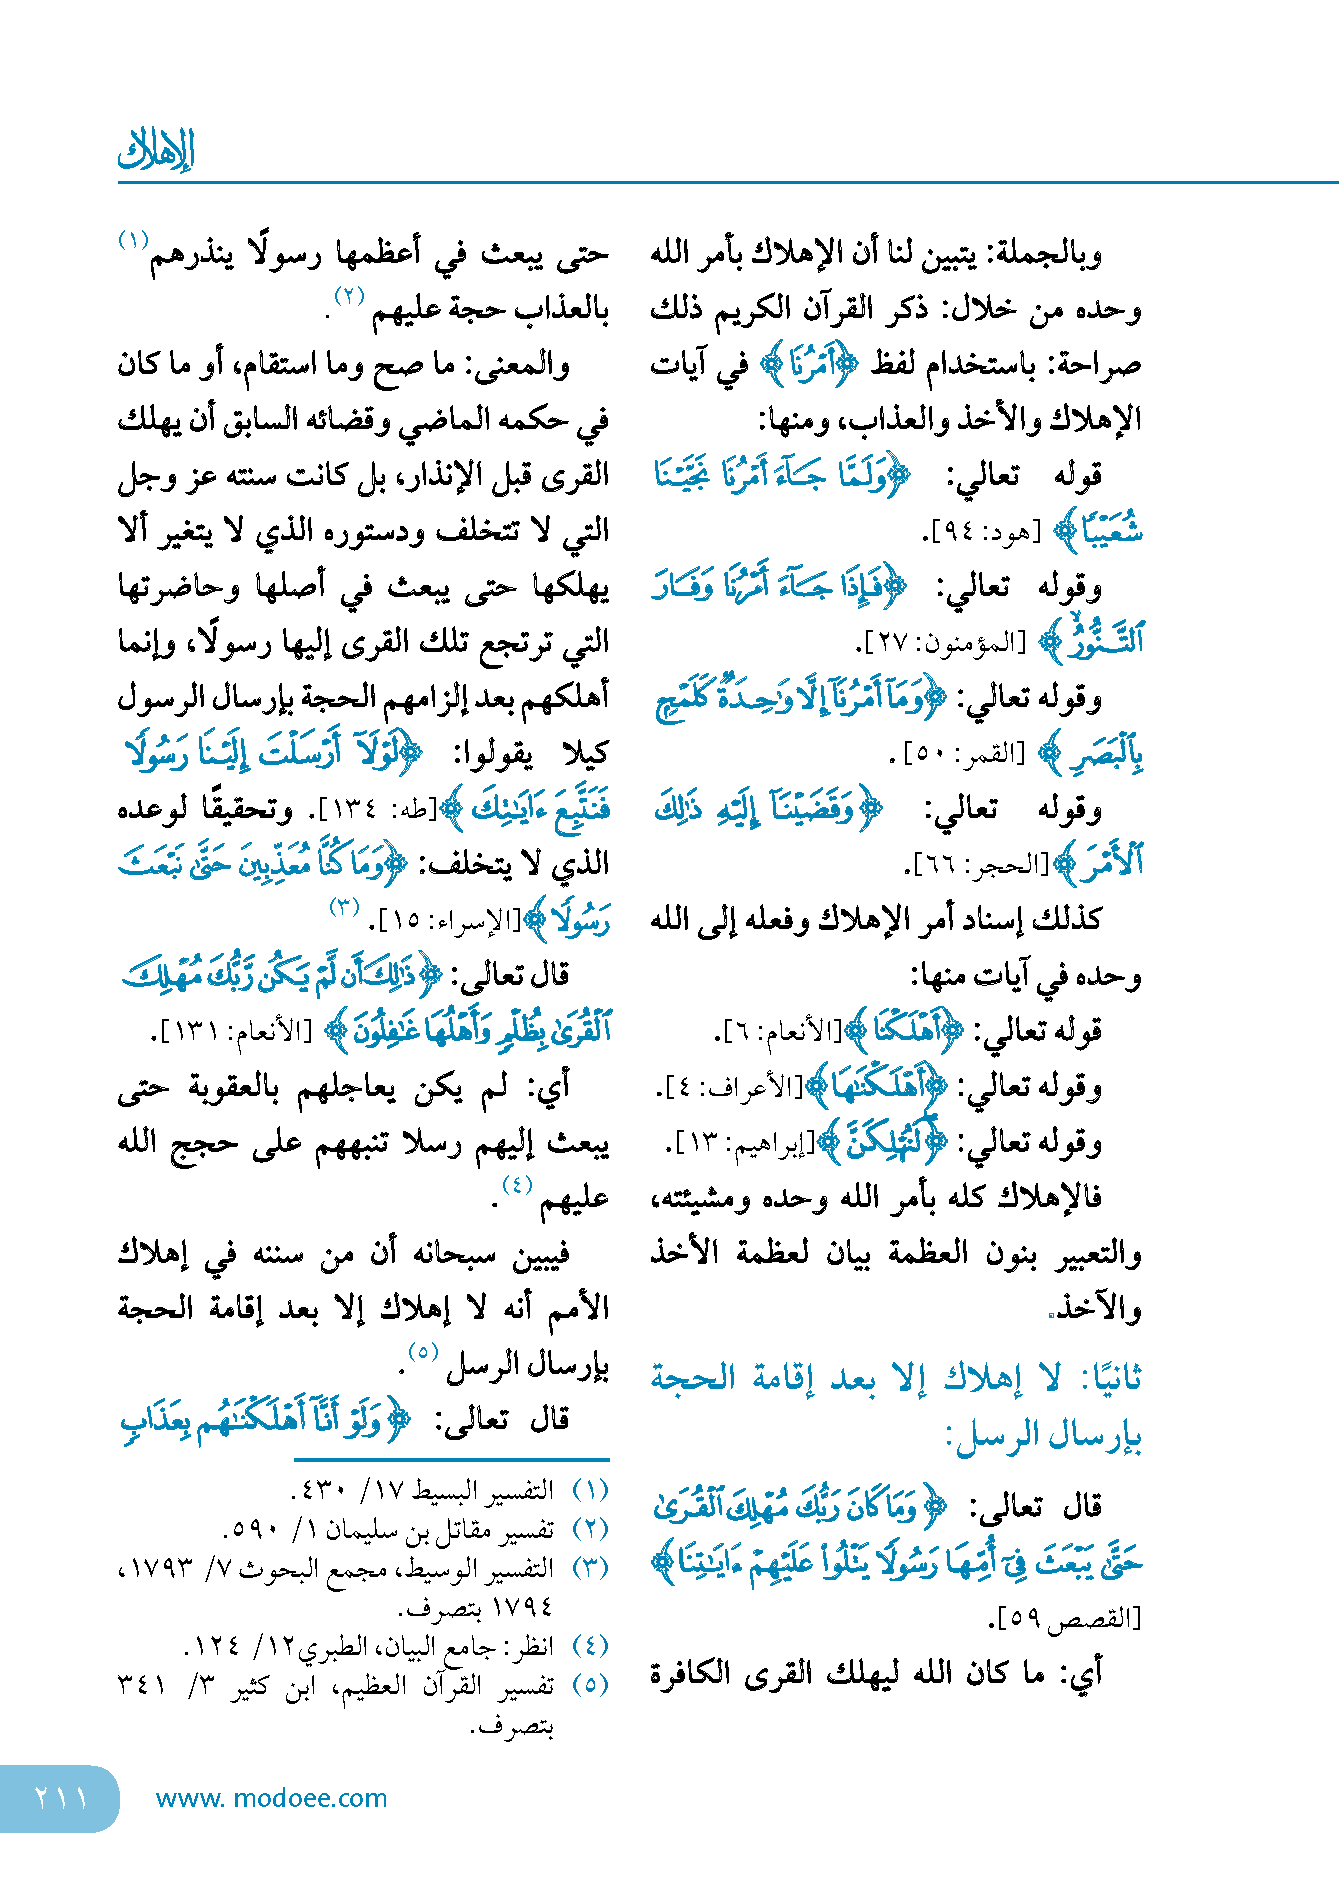 الإهلاك
وبالجملة: يتبين لنا أن الإهلاك بأمر الله
وحده من خلال: ذكر القرآن الكريم ذلك
صراحة: باستخدام لفظ ﴿أَمْرُنَا﴾ في آيات
الإهلاك والأخذ والعذاب، ومنها:
قوله تعالي: ﴿وَلَمَّا جَآءَ أَمْرُنَا نَجَّيْنَا
شُعَيْبًا﴾ [هود: ٩٤].
وقوله تعالي: ﴿فَإِذَا جَآءَ أَمْرُنَا وَفَارَ
ٱلتَّنُّورُ ۙ﴾ [المؤمنون: ٢٧].
وقوله تعالي: ﴿وَمَآ أَمْرُنَآ إِلَّا وَٰحِدَةٌ كَلَمْحٍۭ
بِٱلْبَصَرِ﴾ [القمر: ٥٠].
وقوله تعالي: ﴿وَقَضَيْنَآ إِلَيْهِ ذَٰلِكَ
ٱلْأَمْرَ﴾[الحجر: ٦٦].
كذلك إسناد أمر الإهلاك وفعله إلى الله
وحده في آيات منها:
قوله تعالي: ﴿أَهْلَكْنَا﴾[الأنعام: ٦].
وقوله تعالي: ﴿أَهْلَكْنَٰهَا﴾[الأعراف: ٤].
وقوله تعالي: ﴿لَنُهْلِكَنَّ﴾[إبراهيم: ١٣].
فالإهلاك كله بأمر الله وحده ومشيئته،
والتعبير بنون العظمة بيان لعظمة الأخذ
والآخذ.
ثانيًا: لا إهلاك إلا بعد إقامة الحجة
بإرسال الرسل:
قال تعالى: ﴿وَمَا كَانَ رَبُّكَ مُهْلِكَ ٱلْقُرَىٰ
حَتَّىٰ يَبْعَثَ فِىٓ أُمِّهَا رَسُولًا يَتْلُوا۟ عَلَيْهِمْ ءَايَٰتِنَا﴾
[القصص ٥٩].
أي: ما كان الله ليهلك القرى الكافرة
حتى يبعث في أعظمها رسولًا ينذرهم(١)
بالعذاب حجة عليهم (٢).
والمعنى: ما صح وما استقام، أو ما كان
في حكمه الماضي وقضائه السابق أن يهلك
القرى قبل الإنذار، بل كانت سنته عز وجل
التي لا تتخلف ودستوره الذي لا يتغير ألا
يهلكها حتى يبعث في أصلها وحاضرتها
التي ترتجع تلك القرى إليها رسولًا، وإنما
أهلكهم بعد إلزامهم الحجة بإرسال الرسول
كيلا يقولوا: ﴿لَوْلَآ أَرْسَلْتَ إِلَيْنَا رَسُولًا
فَنَتَّبِعَ ءَايَٰتِكَ﴾[طه: ١٣٤]. وتحقيقًا لوعده
الذي لا يتخلف: ﴿وَمَا كُنَّا مُعَذِّبِينَ حَتَّىٰ نَبْعَثَ
رَسُولًا﴾[الإسراء: ١٥]. (٣)
قال تعالى: ﴿ذَٰلِكَ أَن لَّمْ يَكُن رَّبُّكَ مُهْلِكَ
ٱلْقُرَىٰ بِظُلْمٍ وَأَهْلُهَا غَٰفِلُونَ﴾ [الأنعام: ١٣١].
أي: لم يكن يعاجلهم بالعقوبة حتى
يبعث إليهم رسلا تنبههم على حجج الله
عليهم (٤).
فيبين سبحانه أن من سننه في إهلاك
الأمم أنه لا إهلاك إلا بعد إقامة الحجة
بإرسال الرسل (٥).
قال تعالى: ﴿وَلَوْ أَنَّآ أَهْلَكْنَٰهُم بِعَذَابٍ
(١) التفسير البسيط ١٧/ ٤٣٠.
(٢) تفسير مقاتل بن سليمان ١/ ٥٩٠.
(٣) التفسير الوسيط، مجمع البحوث ٧/ ١٧٩٣،
١٧٩٤ بتصرف.
(٤) انظر: جامع البيان، الطبري١٢/ ١٢٤.
(٥) تفسير القرآن العظيم، ابن كثير ٣/ ٣٤١
بتصرف.
www. modoee.com
٢١١